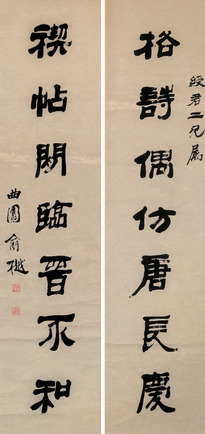 綬君二兄屬
格詩偶仿唐長慶
禊帖閒臨晉永和
曲園俞樾